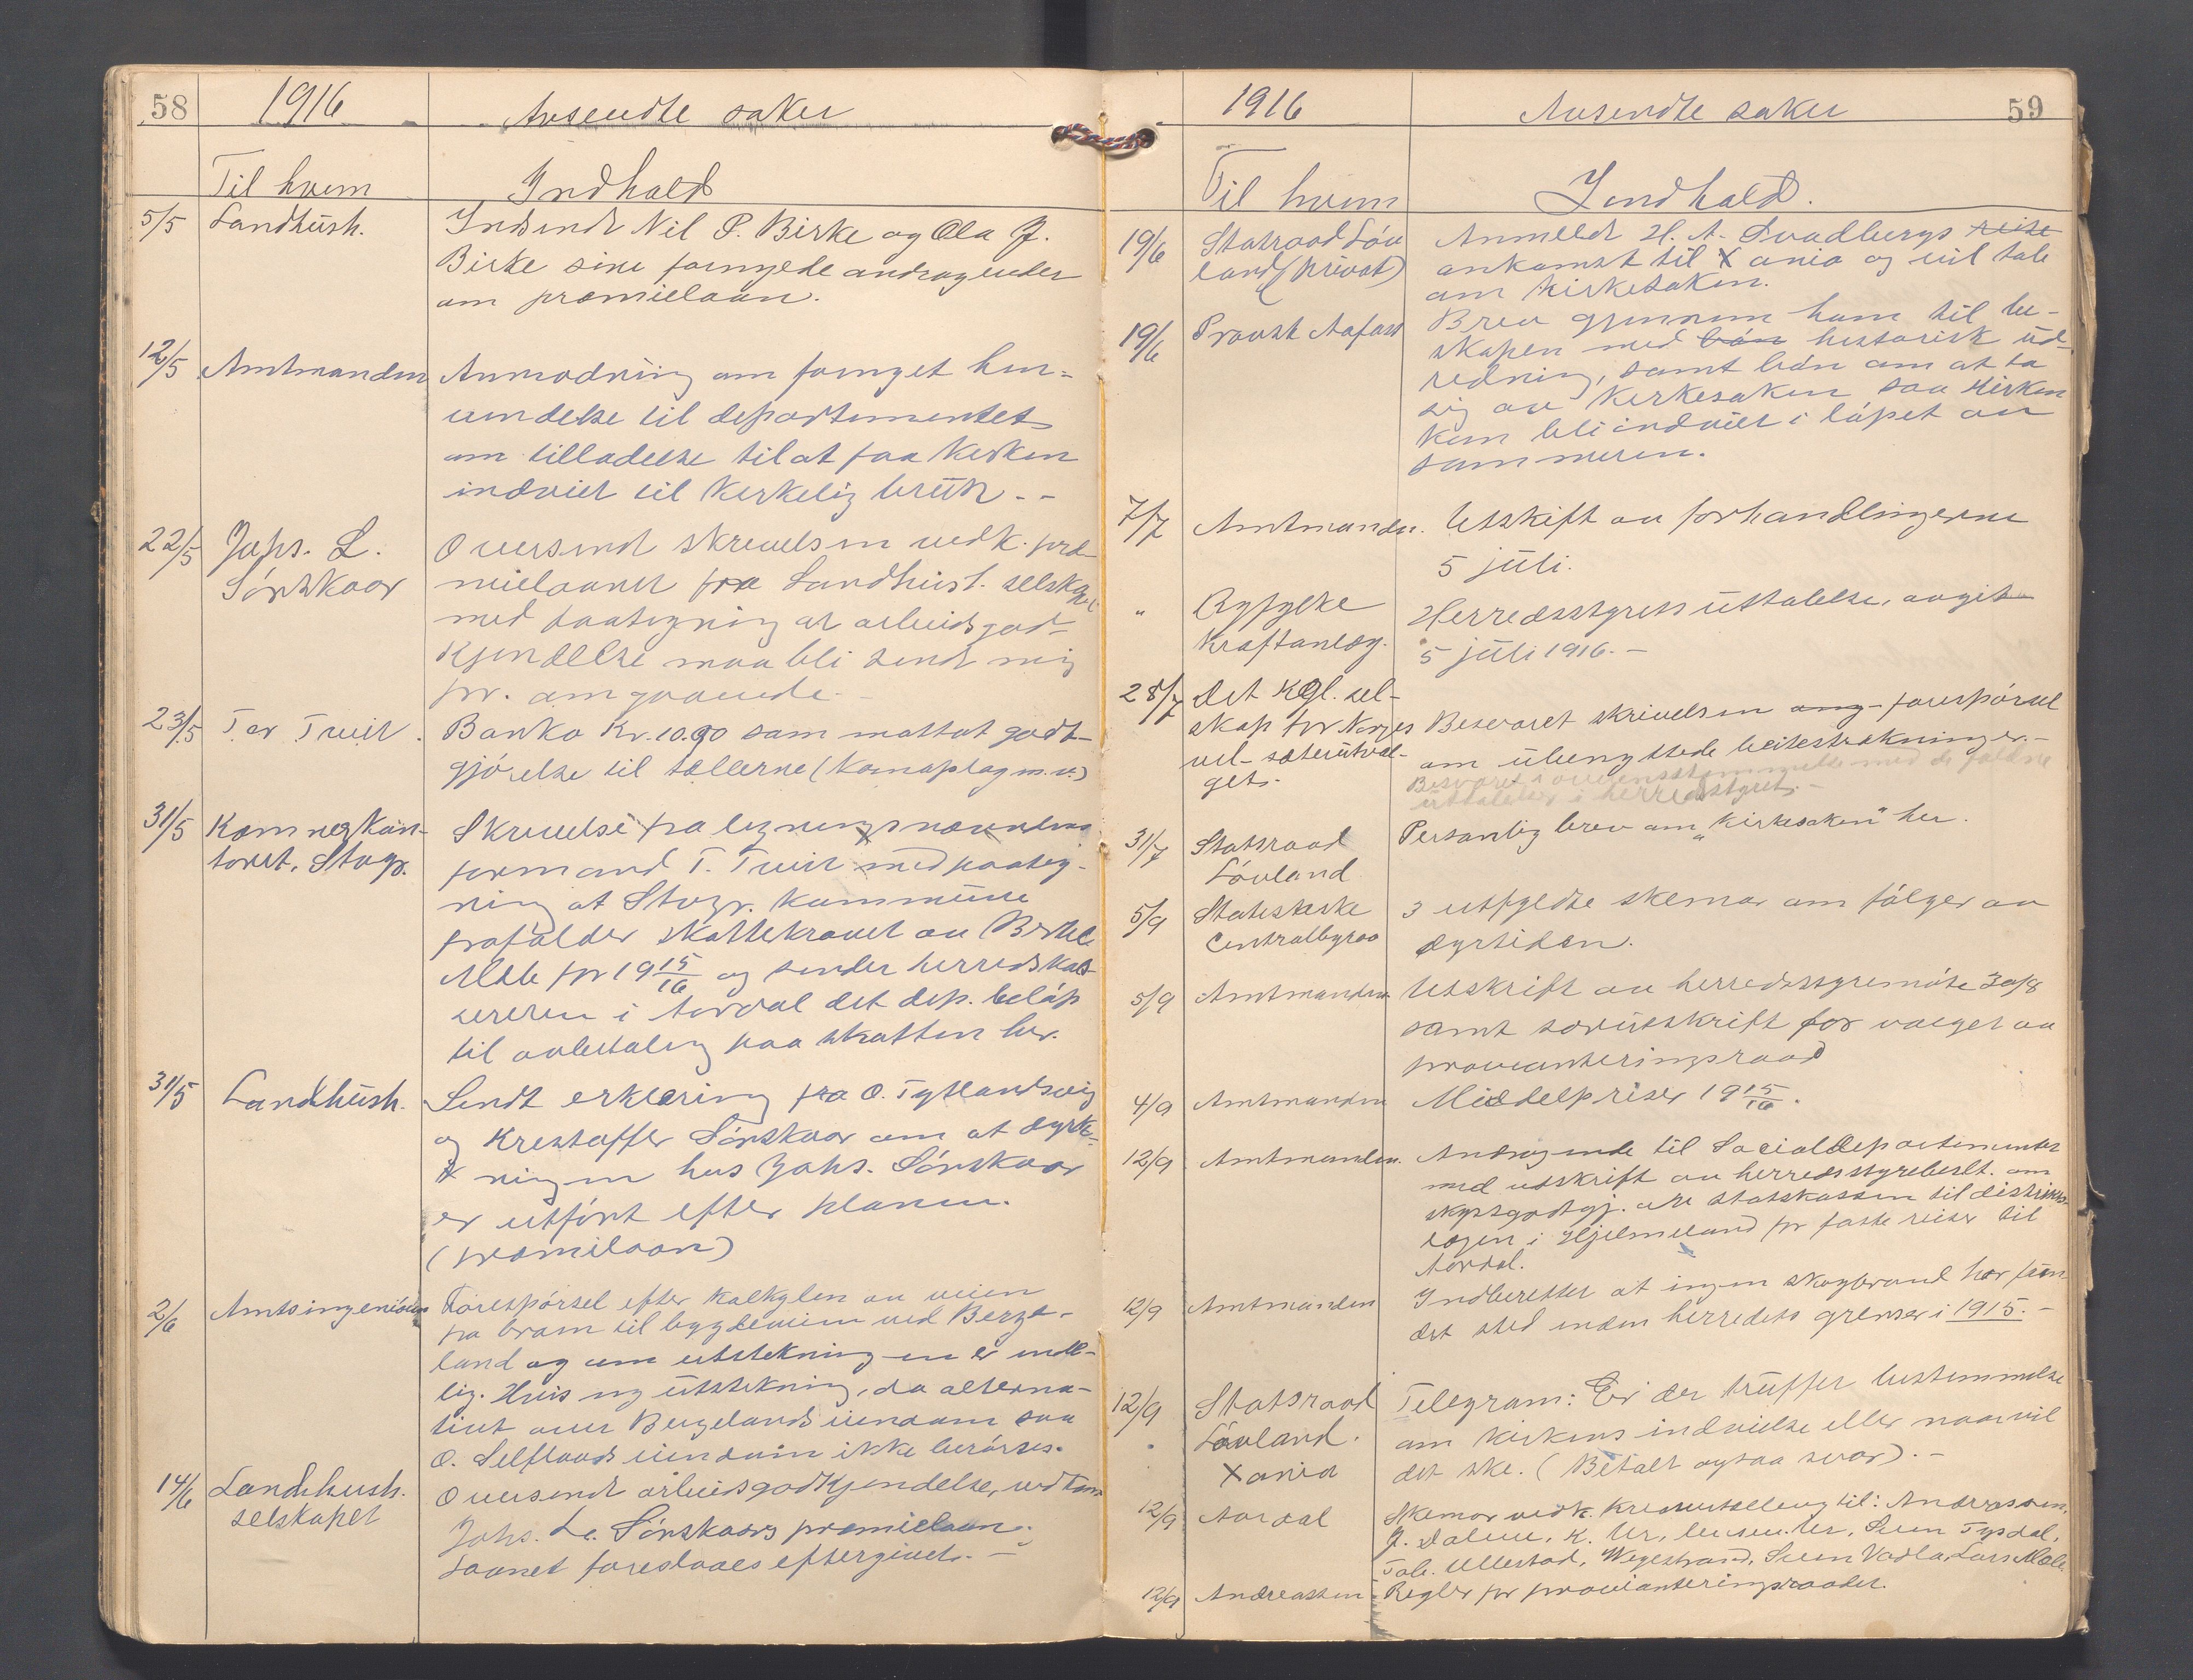 58 1916 Avsendte saker
Til hvem Indhold
5/5 Landhush. Indsendt Nil P. Birke og Ola J.
Birke sine fornyede andragender
om præmielaan.
12/5 Amtmanden Anmodning om fornyet hen-
vendelse til departementet
om tilladelse til at faa kirken
indviet til kirkelig bruk. -
22/5 Johs. L. Oversendt skrivelsen vedk. præ-
Sörskaar mielaanet fra Landhush. selskapet
med paategning at arbeidsgod-
kjendelse maa bli sendt mig
pr. omgaaende. -
23/5 Tor Tveit. Banko Kr. 10.90 som mottat godt-
gjörelse til tællerne (Kornoplag m.v.)
31/5 Kæmnerkon- Skrivelse fra ligningsnævndens
toret, Stvgr. formand T. Tveit med paateg-
ning at Stvgr. kommune
frafalder skattekravet av Bertel
Mæle for 19 15/16 og sender herredskas-
sereren i Aardal det dep. belöp
til avbetaling paa skatten her.
31/5 Landhush. Sendt erklæring fra O. Tytlandsvig
og Kristoffer Sörskaar om at dyrk-
ningen hos Johs. Sörskaar
er utfört efter planen.
(præmielaan)
2/6 Amtsingeniören Forespörsel efter kalkylen av veien
fra bram til bygdeveien ved Berge-
land og om utstekningen er ende-
lig. Hvis ny utstekning, da alterna-
tivt over Bergelands eiendom saa
O. Selflaads eiendom ikke berörses.
14/6 Landhush. Oversendt arbeidsgodkjendelse, vedkom
selskapet Johs. L. Sörskaars præmielaan.
Laanet foreslaaes eftergivet. -
1916 Avsendte saker 59
Til hvem Indhold.
19/6 Statsraad Löv Anmeldt H. A. Svadbergs reise
land (privat) ankomst til Xania og vil tale
om kirkesaken.
19/6 Provst Aafoss Brev gjennem ham til bi-
skopen med bön historisk ut-
redning, samt bön om at ta
sig av kirkesaken saa kirken
kan bli indviet i löpet av
sommeren.
7/7 Amtmanden. Utskrift av forhandlingerne
5 juli.
" Ogfyeke Herredsstyrets uttalelse, avgit
Kraftanlæg. 5 juli 1916. -
28/7 Det Kgl. sel-
skap for Norges Besvaret skrivelsen ang. forespörsel
vel - sæterutval- om ubenyttede beitestrækninger. -
gets. Besvaret i overensstemmelse med de faldne
uttalelser i herredsstyret. -
31/7 Statsraad Personlig brev om "kirkesaken" her.
Lövland
5/9 Statistiske 3 utfyldte skemaer om fölger av
Centralbyraa dyrtiden.
5/9 Amtmanden. Utskrift av herredsstyremöte 30/8
samt særutskrift for valget av
provianteringsraad
4/9 Amtmanden Middelpriser 19 15/16.
12/9 Amtmanden. Andragende til Socialdepartementet
med utskrift av herredsstyrebeslt. om
skyssgodtgj. av statskassen til distrikts-
lægen i Hjelmeland for faste reiser til
Aardal.
12/9 Amtmanden Indberetter at ingen skogbrand har fun-
det sted inden herredets grenser i 1915. -
12/9 Statsraad Telegram: Er der truffet bestemmelse
Lövland. om kirkens indvielse eller naar vil
Xania det ske. (Betalt ogsaa svar). -
12/9 Aardal Skemaer vedk. Kreaturtelling til: Andreassen,
J. Dalene, K. Ur, Sven Tysdal,
Tob. Ullestad, Wegestrand, Sven Vadla, Lars Mæle.
12/9 Andreassen Regler for provianteringsraadet.